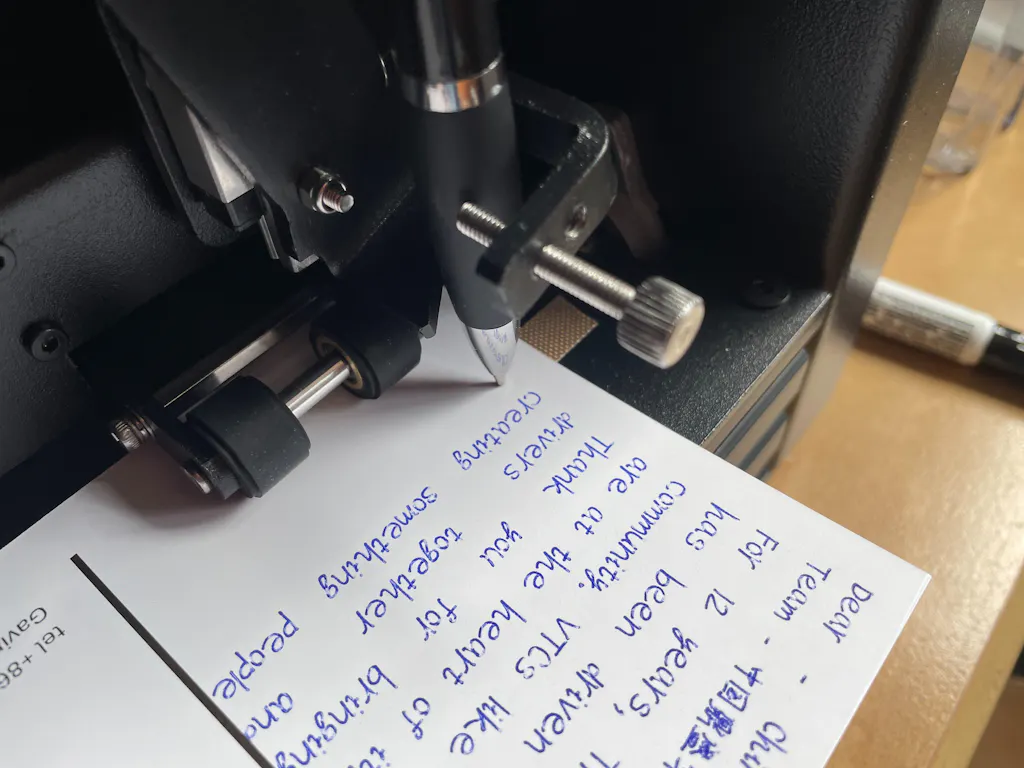 Dear - Chi
Team - 中国
For 12 years,
has been driven
community. VTCs like
are at the heart of
Thank you for bringing
drivers together and
creating something people
tel +86
Gavin